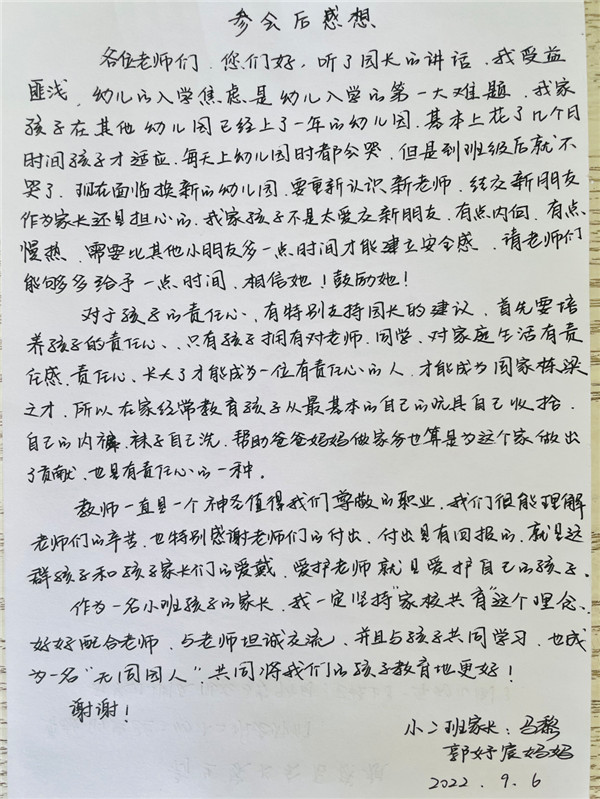 参会后感想
各位老师们、您们好，听了园长的讲话、我受益
匪浅，幼儿的入学焦虑是幼儿入学的第一大难题，我家
孩子在其他幼儿园已经上了一年的幼儿园，基本上花了几个月
时间孩子才适应，每天上幼儿园时都会哭，但是到班级后就不
哭了，现在面临换新的幼儿园，要重新认识新老师，结交新朋友
作为家长还是担心的，我家孩子不是太爱交新朋友，有点内向，有点
慢热，需要比其他小朋友多一点时间才能建立安全感，请老师们
能够多给予一点时间，相信她！鼓励她！
对于孩子的责任心、有特别支持园长的建议，首先要培
养孩子的责任心、只有孩子拥有对老师、同学、对家庭生活有责
任感、责任心、长大了才能成为一位有责任心的人，才能成为国家栋梁
之才，所以在家经常教育孩子从最基本的自己的玩具自己收拾，
自己的内裤、袜子自己洗，帮助爸爸妈妈做家务也算是为这个家做出
了贡献、也是有责任心的一种。
教师一直是一个神圣值得我们尊敬的职业，我们很能理解
老师们的辛苦，也特别感谢老师们的付出，付出是有回报的，就是这
群孩子和孩子家长们的爱戴，爱护老师就是爱护自己的孩子。
作为一名小班孩子的家长，我一定坚持“家校共育”这个理念、
好好配合老师，与老师坦诚交流、并且与孩子共同学习，也成
为一名“无围园人”，共同将我们的孩子教育地更好！
谢谢！
小二班家长：马黎
郭妤宸妈妈
2022.9.6